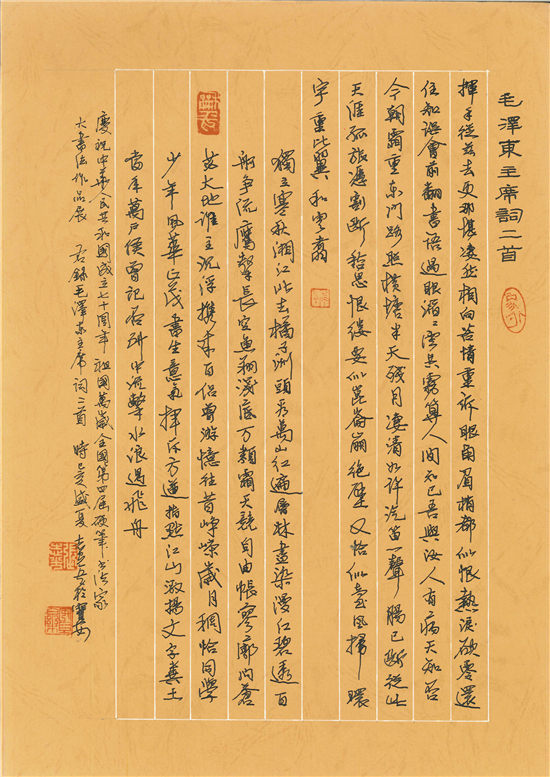 毛澤東主席詞二首
揮手從茲去更那堪凄然相向苦情重訴眼角眉梢都似恨熱淚欲零還
住知誤會前翻書語過眼滔滔雲共霧算人間知己吾與汝人有病天知否
今朝霜重東門路照橫塘半天殘月凄清如許汽笛一聲腸已斷從此
天涯孤旅憑割斷愁思恨縷要似崑崙崩絕壁又恰似臺風掃環
宇重比翼和雲翥
獨立寒秋湘江北去橘子洲頭看萬山紅遍層林盡染漫江碧透百
舸爭流鷹擊長空魚翔淺底万類霜天競自由悵寥廓問蒼
茫大地誰主沉浮攜來百侶曾游憶往昔崢嶸歲月稠恰同學
少年風華正茂書生意氣揮斥方遒指點江山激揚文字糞土
當年萬戶侯曾記否到中流擊水浪遏飛舟
慶祝中華人民共和國成立七十周年祖國萬歲全國第四屆硬筆書法家
大書法作品展 右錄毛澤東主席詞二首 時己亥盛夏